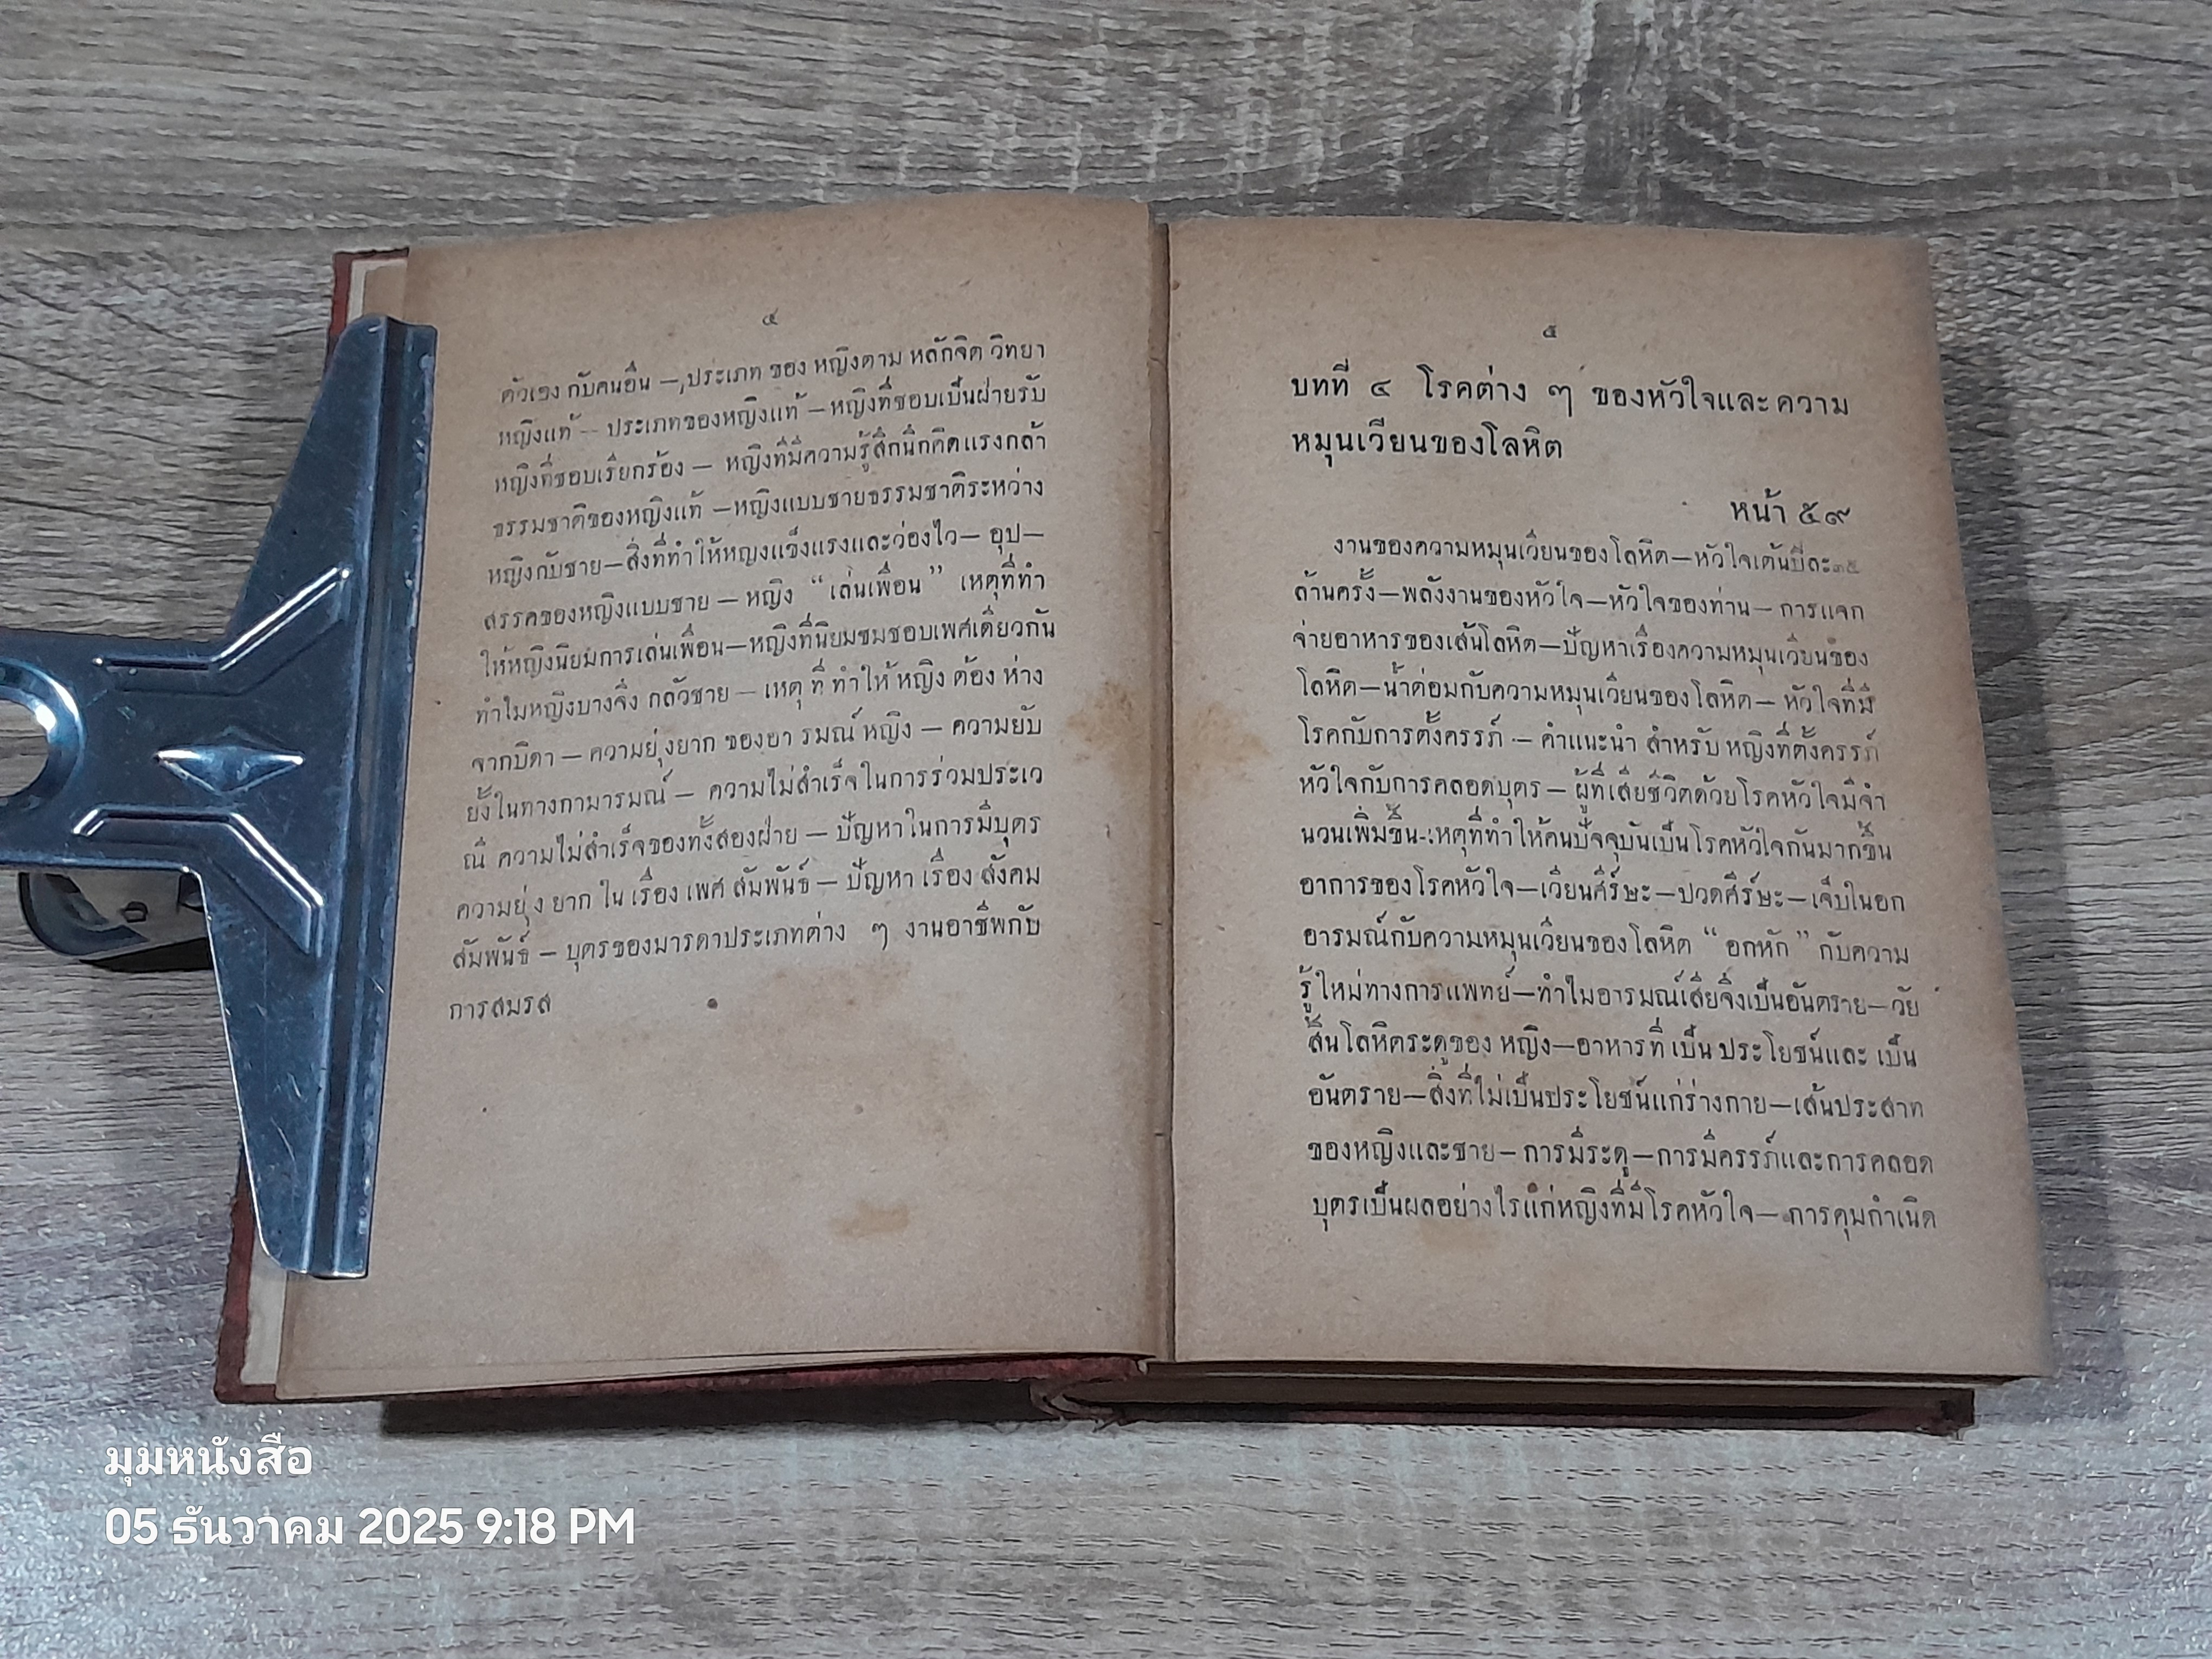 ๔
ตัวเอง กับคนอื่น —,ประเภท ของ หญิงตาม หลักจิต วิทยา
หญิงแท้ — ประเภทของหญิงแท้ —หญิงที่ชอบเป็นฝ่ายรับ
หญิงที่ชอบเรียกร้อง — หญิงที่มีความรู้สึกนึกคิดแรงกล้า
ธรรมชาติของหญิงแท้ —หญิงแบบชายธรรมชาติระหว่าง
หญิงกับชาย—สิ่งที่ทำให้หญงแข็งแรงและว่องไว— อุป—
สรรคของหญิงแบบชาย — หญิง “เล่นเพื่อน” เหตุที่ทำ
ให้หญิงนิยมการเล่นเพื่อน—หญิงที่นิยมชมชอบเพศเดียวกัน
ทำไมหญิงบางจึ่ง กลัวชาย — เหตุ ที่ ทำให้ หญิง ต้อง ห่าง
จากบิดา — ความยุ่งยาก ของอา รมณ์ หญิง — ความยับ
ยั้งในทางกามารมณ์ — ความไม่สำเร็จในการร่วมประเว
ณี ความไม่สำเร็จของทั้งสองฝ่าย — ปัญหาในการมีบุตร
ความยุ่ง ยาก ใน เรื่อง เพศ สัมพันธ์ — ปัญหา เรื่อง สังคม
สัมพันธ์ — บุตรของมารดาประเภทต่าง ๆ งานอาชีพกับ
การสมรส
๕
บทที่ ๔ โรคต่าง ๆ ของหัวใจและความ
หมุนเวียนของโลหิต
หน้า ๕๙
งานของความหมุนเวียนของโลหิต—หัวใจเต้นปีละ๓๕
ล้านครั้ง—พลังงานของหัวใจ—หัวใจของท่าน— การแจก
จ่ายอาหารของเส้นโลหิต—ปัญหาเรื่องความหมุนเวียนของ
โลหิต—น้ำด่อมกับความหมุนเวียนของโลหิต— หัวใจที่มี
โรคกับการตั้งครรภ์ — คำแนะนำ สำหรับ หญิงที่ตั้งครรภ์
หัวใจกับการคลอดบุตร — ผู้ที่เสียชีวิตด้วยโรคหัวใจมีจำ
นวนเพิ่มขึ้น-เหตุที่ทำให้คนปัจจุบันเป็นโรคหัวใจกันมากขึ้น
อาการของโรคหัวใจ—เวียนศีร์ษะ—ปวดศีร์ษะ—เจ็บในอก
อารมณ์กับความหมุนเวียนของโลหิต “อกหัก” กับความ
รู้ใหม่ทางการแพทย์—ทำไมอารมณ์เสียจึ่งเป็นอันตราย—วัย
สิ้นโลหิตระดูของ หญิง—อาหารที่ เป็น ประโยชน์และ เป็น
อันตราย—สิ่งที่ไม่เป็นประโยชน์แก่ร่างกาย—เส้นประสาท
ของหญิงและชาย—การมีระดู—การมีครรภ์และการคลอด
บุตรเป็นผลอย่างไรแก่หญิงที่มีโรคหัวใจ—การคุมกำเนิด
มุมหนังสือ
05 ธันวาคม 2025 9:18 PM